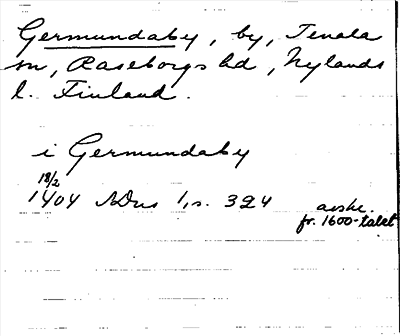 Germundaby, by, Tenala
sn, Raseborgs hd, Nylands
l. Finland.
i Germundaby
18/2
1404 NDns 1, s. 324 avskr.
fr. 1600-talet